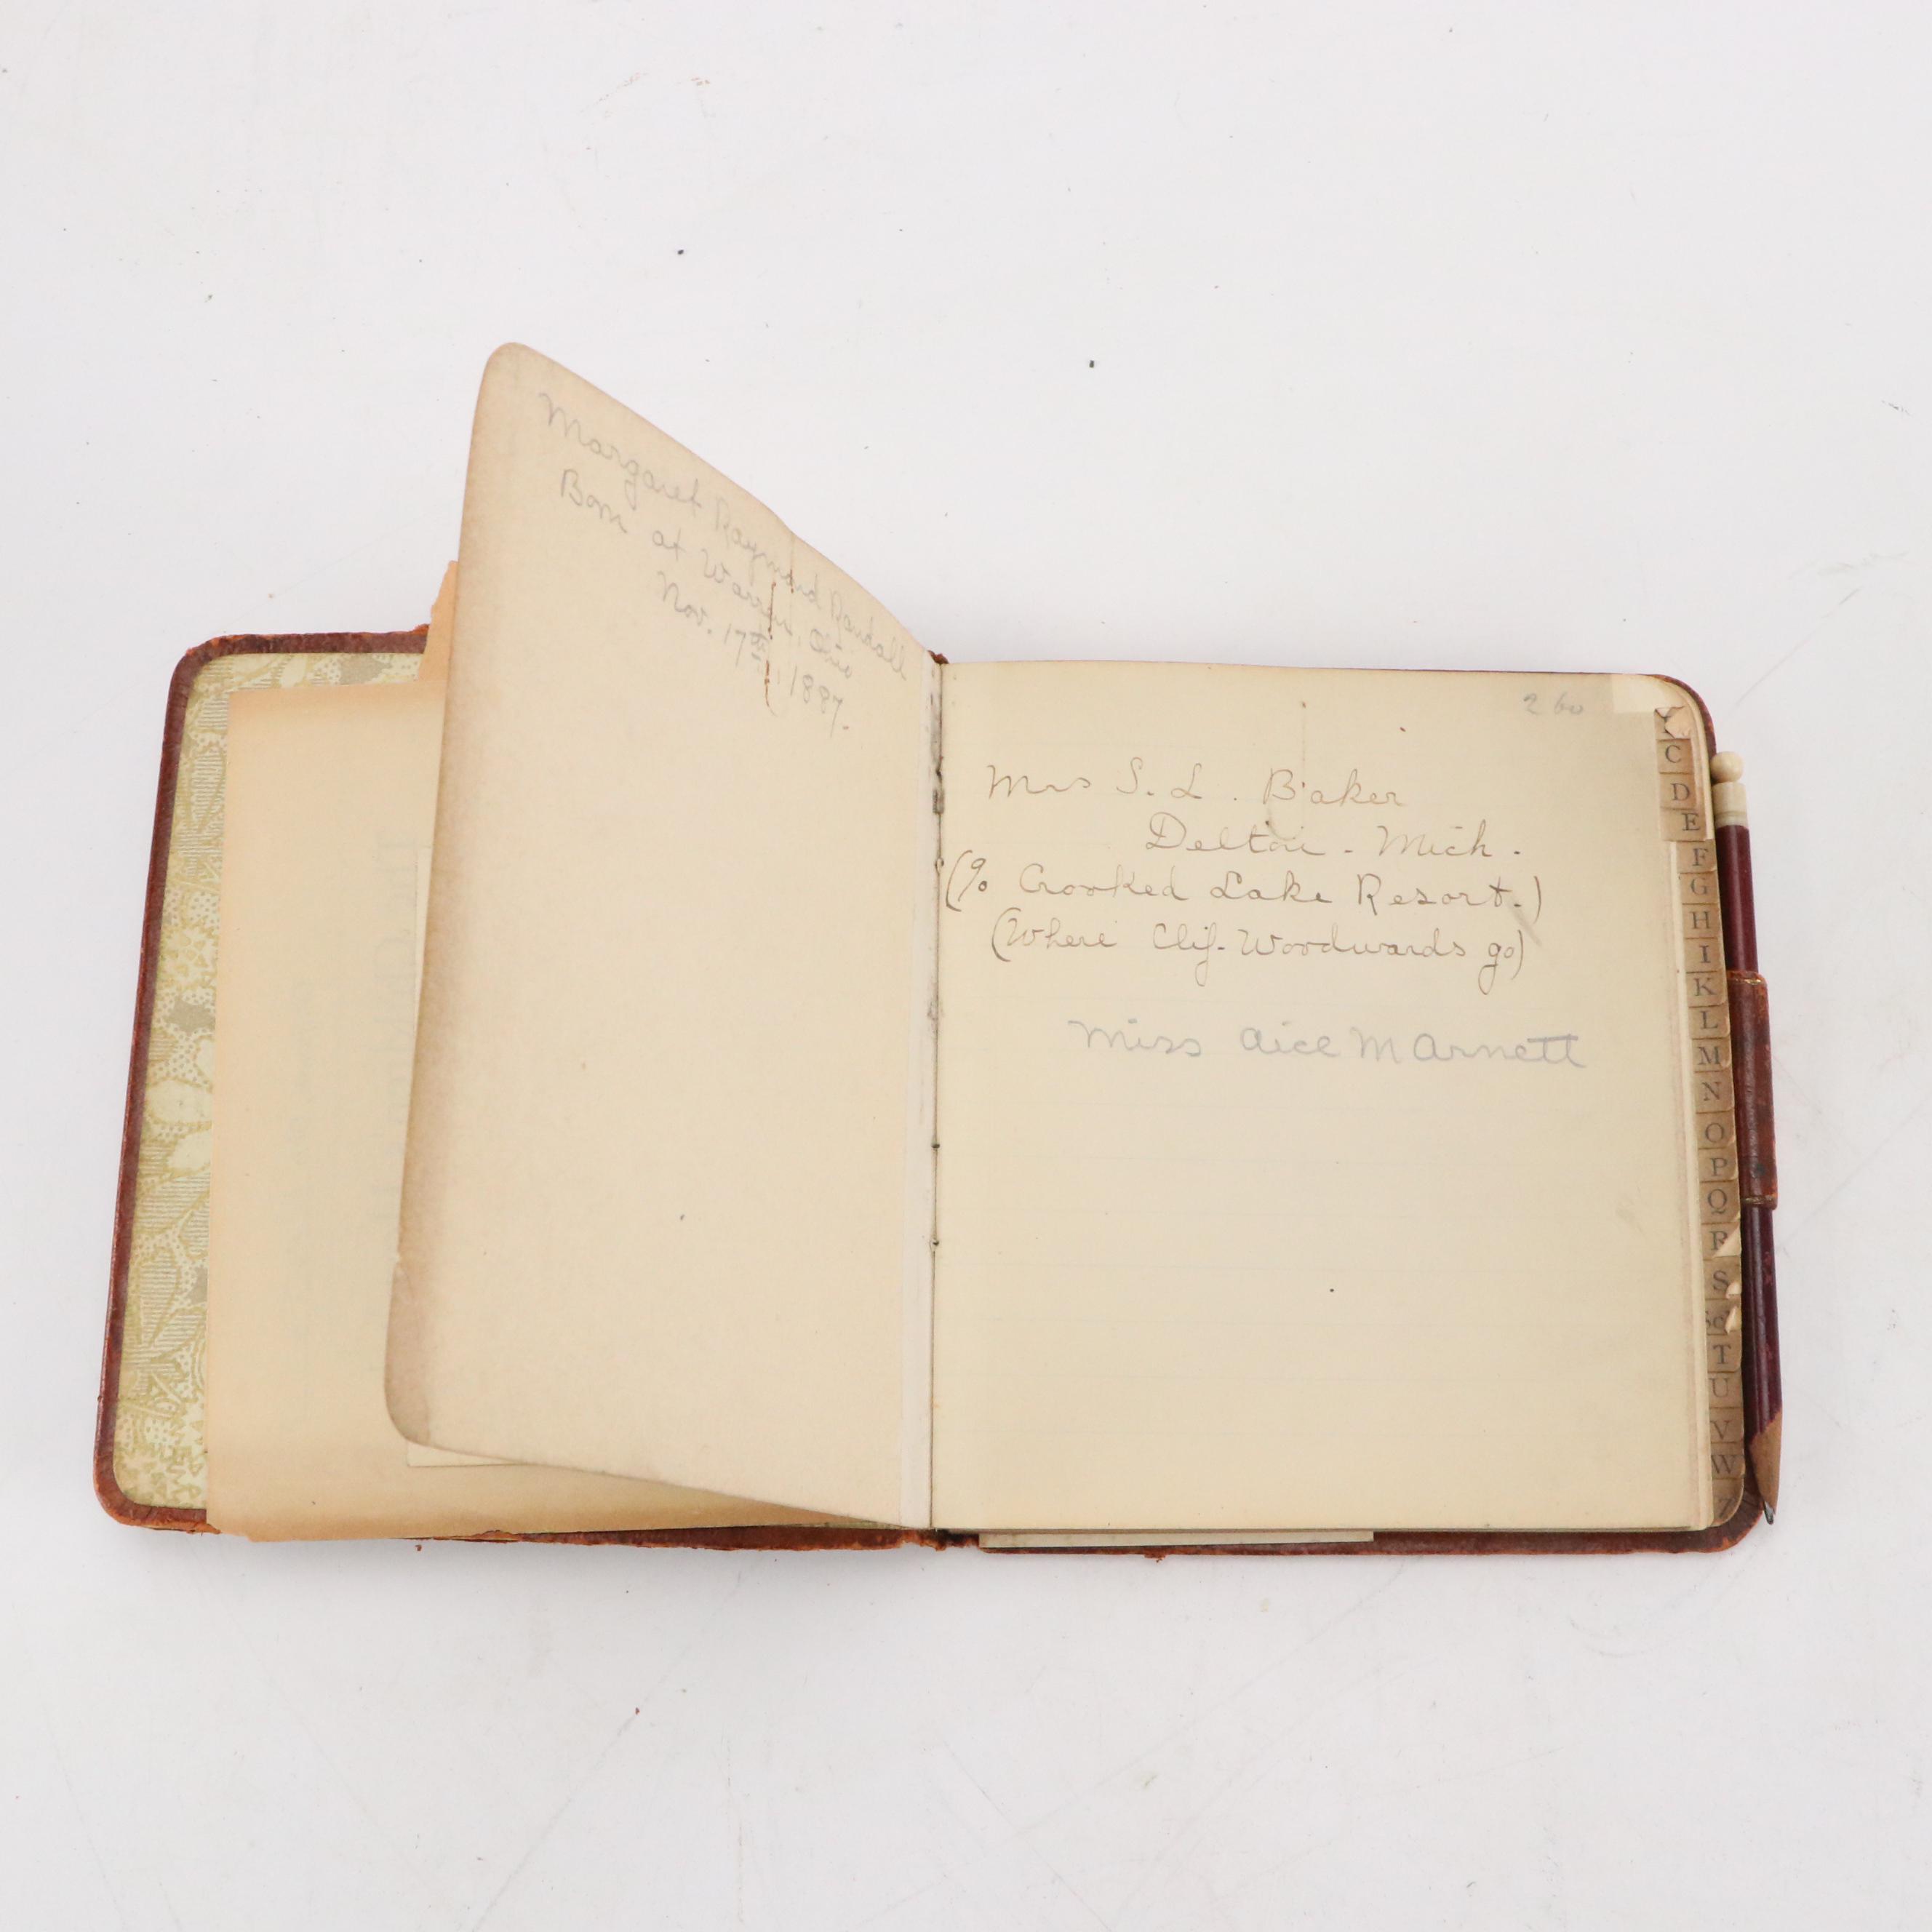 Margaret Raymond Randall
Born at Warren, Ohio
Nov. 17th, 1887.
2 60
Mrs S. L. Baker
Delton - Mich.
(% Crooked Lake Resort.)
(Where Clif. Woodwards go)
Miss Alice M Arnett
C
D
E
F
G
H
I
K
L
M
N
O
P
Q
R
S
T
U
V
W